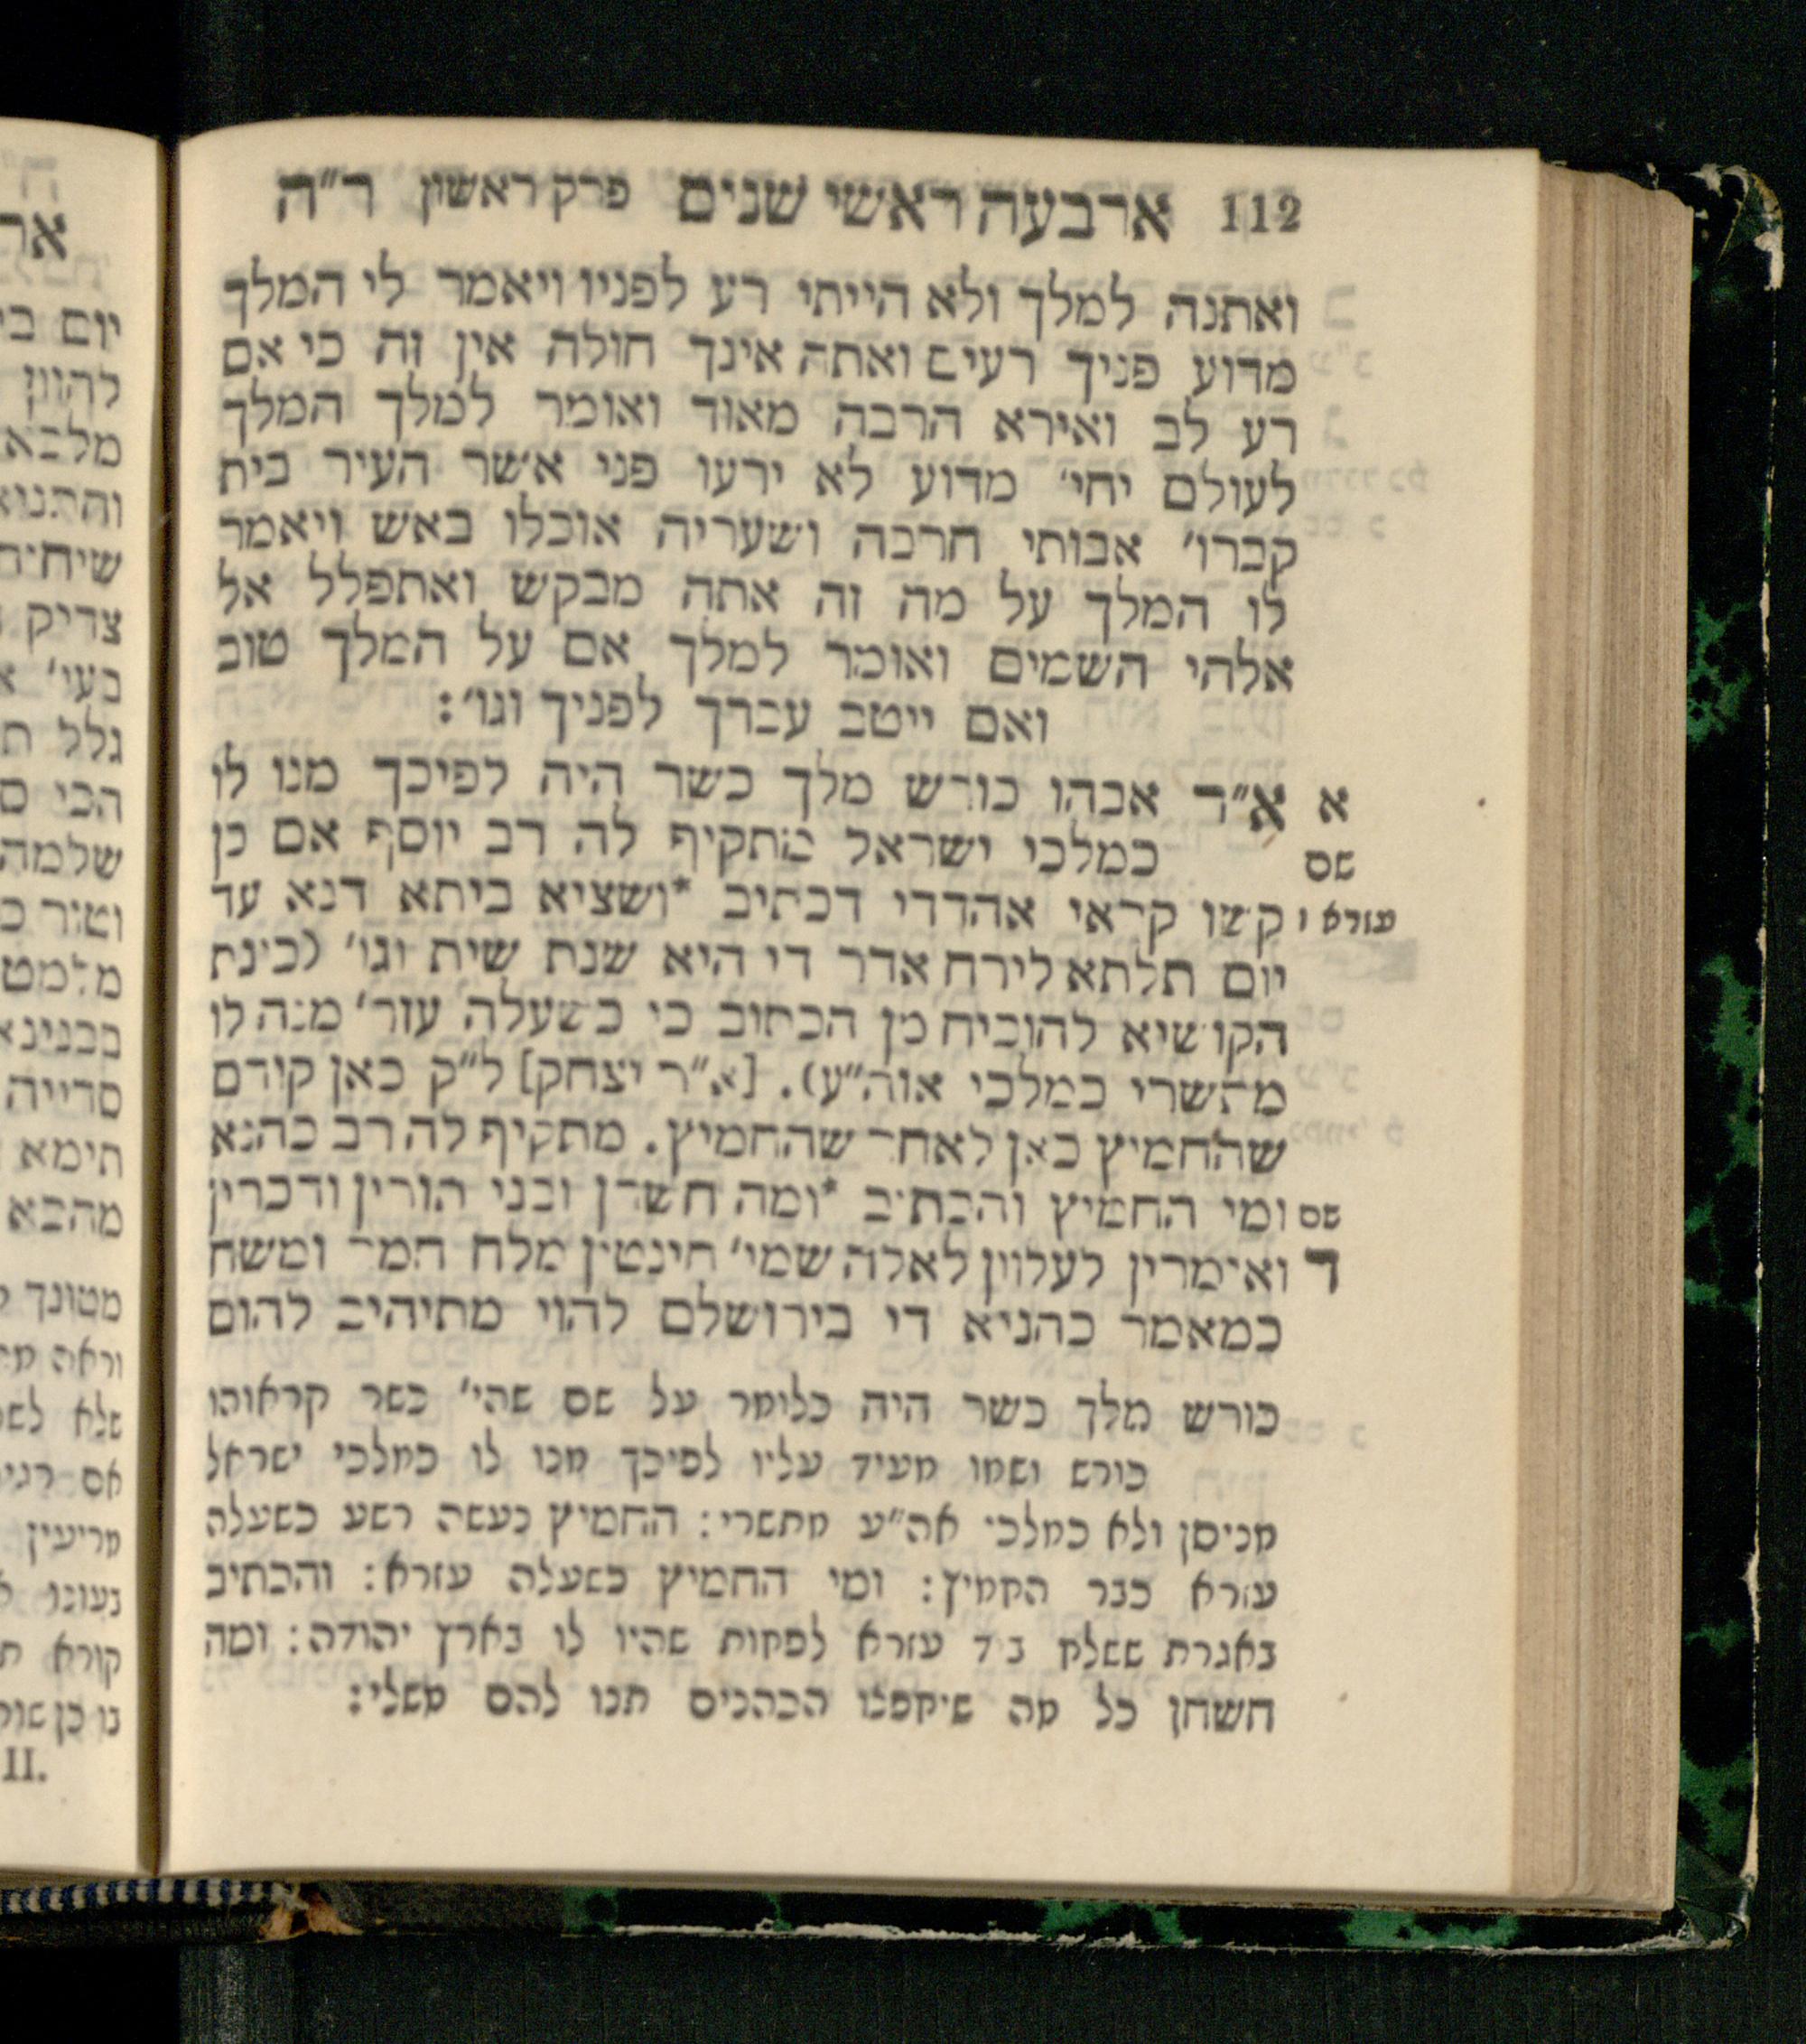 112 ארבעה ראשי שנים פרק ראשון ר״ה
ואתנה למלך ולא הייתי רע לפניו ויאמר לי המלך
מדוע פניך רעים ואתה אינך חולה אין זה כי אם
רע לב ואירא הרבה מאוד ואומר למלך המלך
לעולם יחי׳ מדוע לא ירעו פני אשר העיר בית
קברו׳ אבותי חרבה ושעריה אוכלו באש ויאמר
לו המלך על מה זה אתה מבקש ואתפלל אל
אלהי השמים ואומר למלך אם על המלך טוב
ואם ייטב עבדך לפניך וגו׳:
א א״ר אבהו כורש מלך כשר היה לפיכך מנו לו
שם כמלכי ישראל מתקיף לה רב יוסף אם כן
עזרא ו קשו קראי אהדדי דכתיב *ושציא ביתא דנא עד
יום תלתא לירח אדר די היא שנת שית וגו׳ (כינת
הקושיא להוכיח מן הכתוב כי כשעלה עזר׳ מנה לו
מתשרי כמלכי אוה״ע). [א״ר יצחק] ל״ק כאן קודם
שהחמיץ כאן לאחר שהחמיץ. מתקיף לה רב כהנא
שם ומי החמיץ והכתיב *ומה חשחן ובני תורין ודכרין
ד ואימרין לעלוון לאלה שמי׳ חינטין מלח חמר ומשח
כמאמר כהניא די בירושלם להוי מתיהיב להום
כורש מלך כשר היה כלומר על שם שהי׳ כשר קראוהו
כורש ושמו מעיד עליו לפיכך מנו לו כמלכי ישראל
מניסן ולא כמלכי אה״ע מתשרי: החמיץ נעשה רשע כשעלה
עזרא כבר החמיץ: ומי החמיץ כשעלה עזרא: והכתיב
באגרת ששלח ביד עזרא לפחות שהיו לו בארץ יהודה: ומה
חשחן כל מה שיחפצו הכהנים תנו להם משלי: